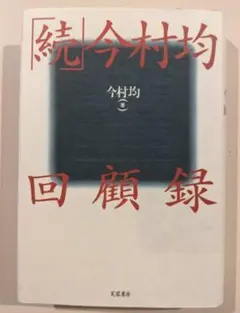 「続」今村均
今村均
(著)
回顧録
芙蓉書房